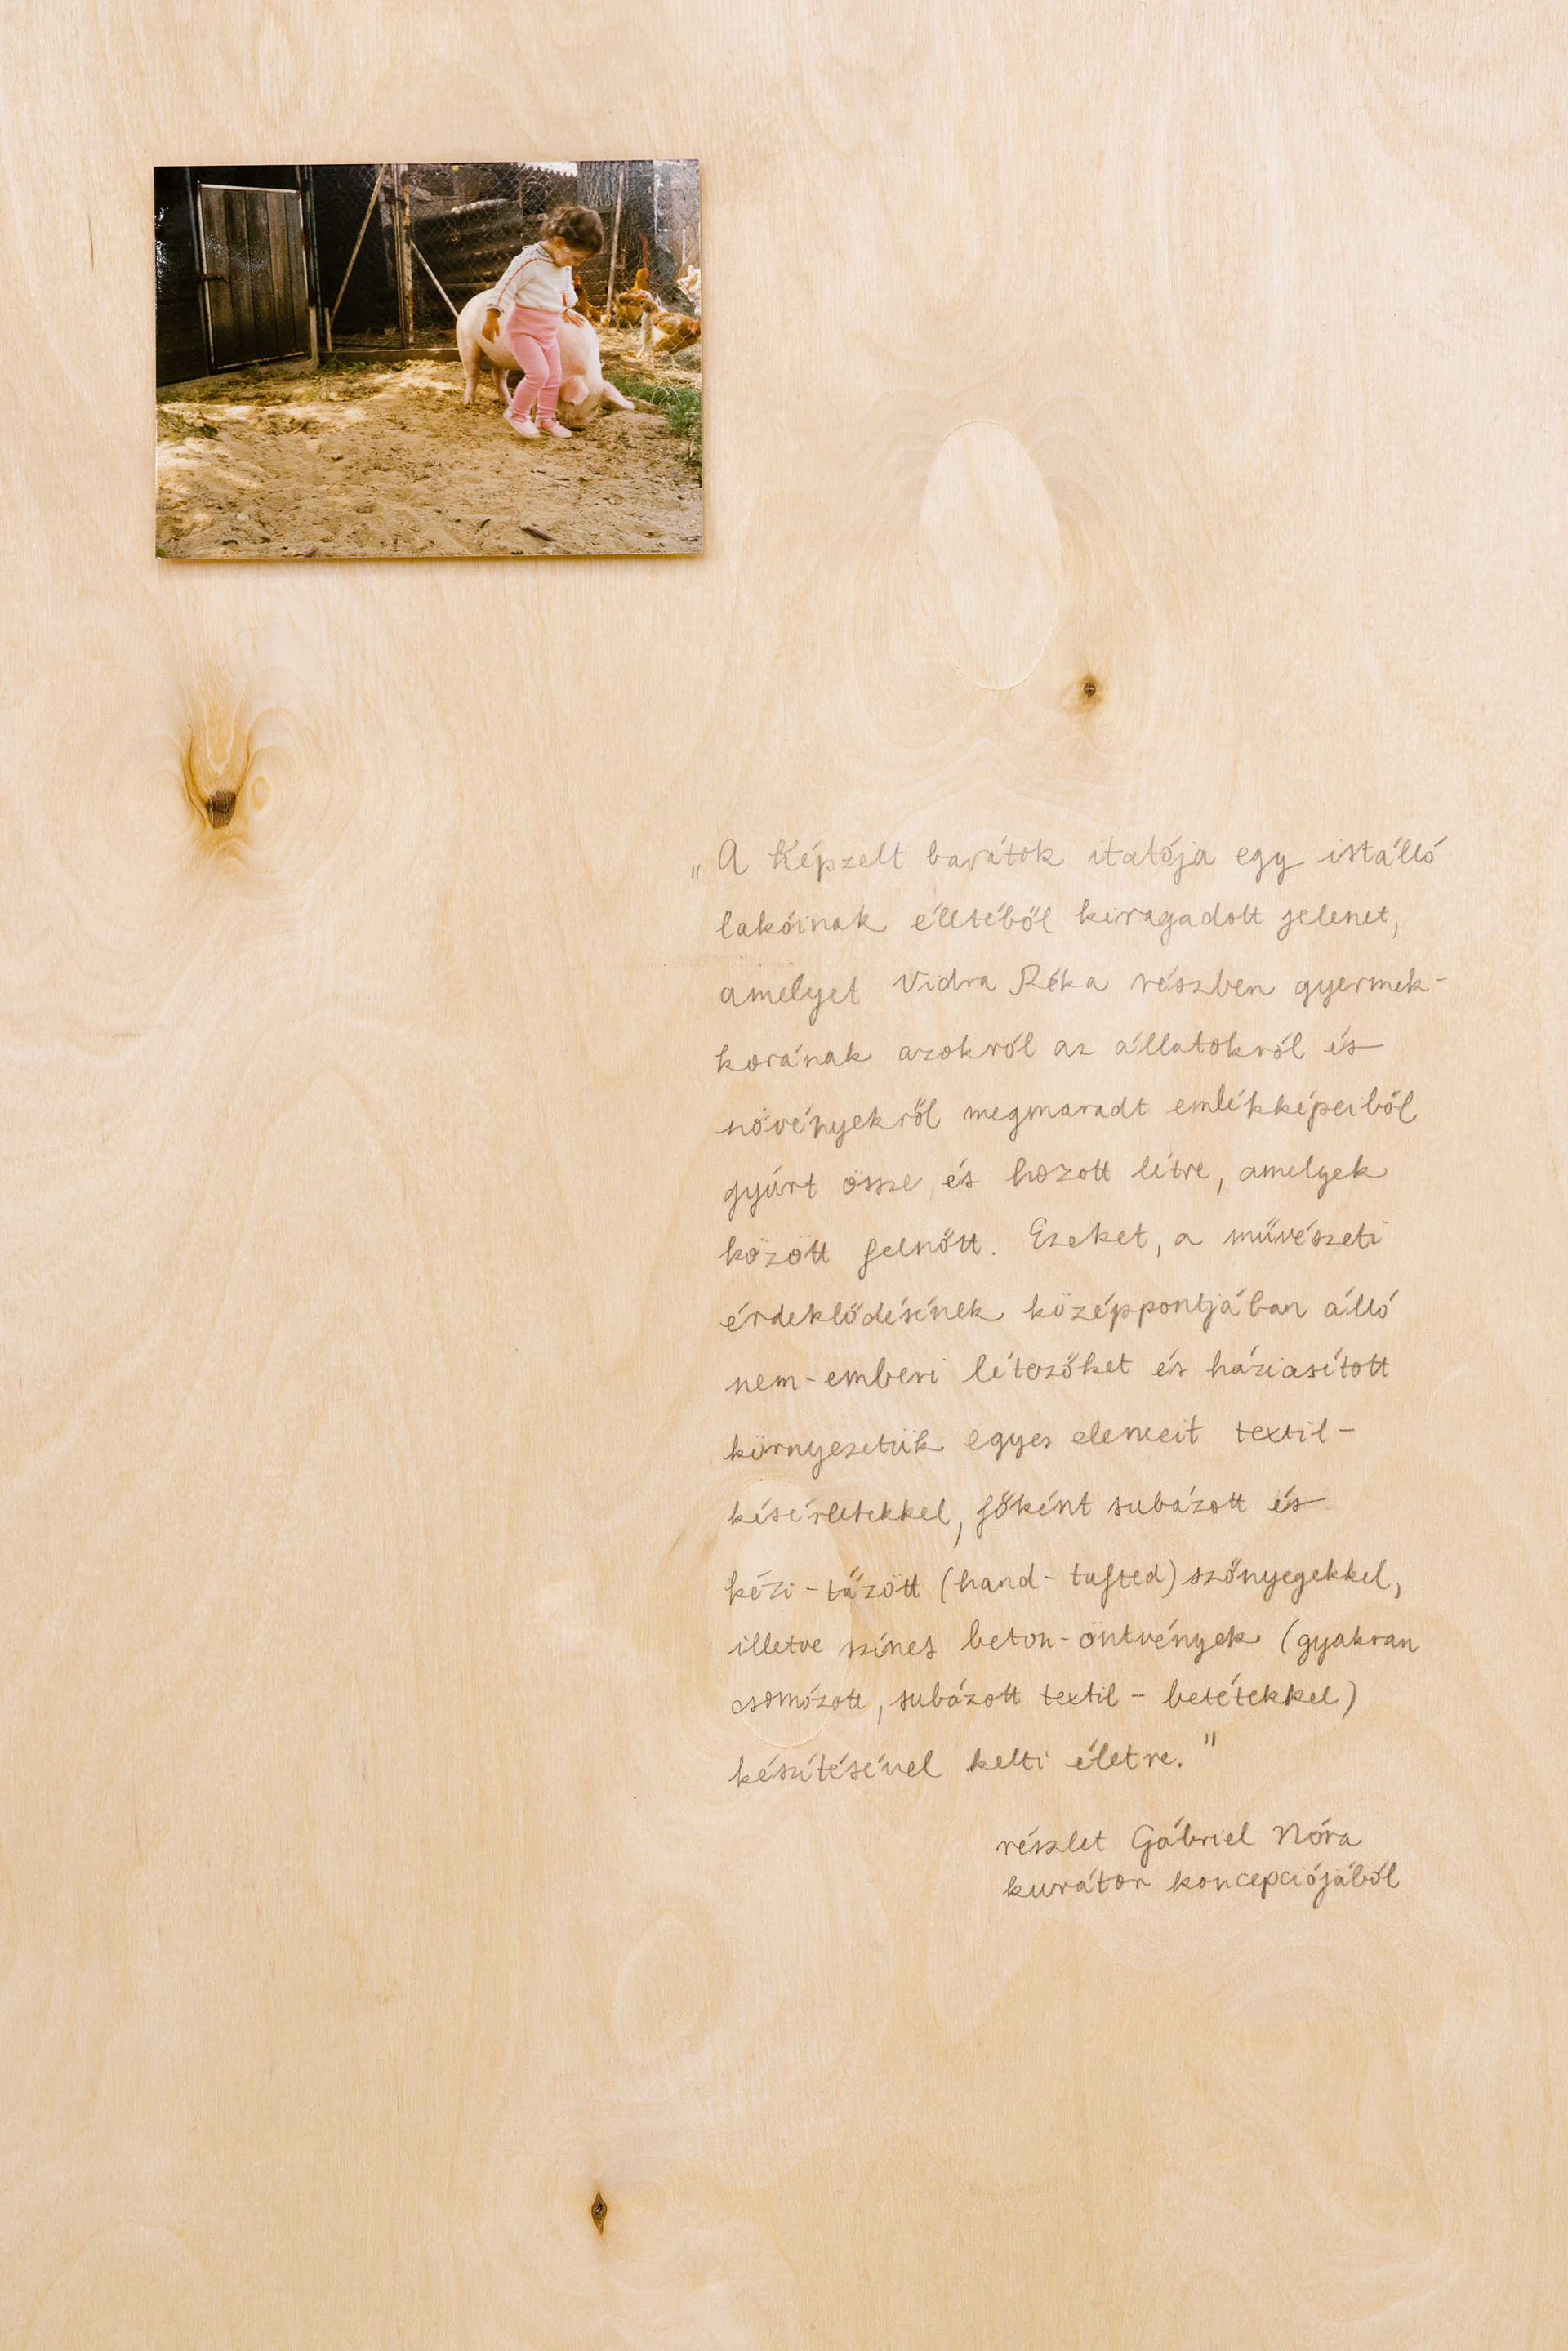 „A Képzelt barátok itatója egy istálló
lakóinak élltéből kiragadott jelenet,
amelyet Vidra Réka részben gyermek-
korának azokról az állatokról és
növényekről megmaradt emlékképeiből
gyúrt össze és hozott létre, amelyek
között felnőtt. Ezeket, a művészeti
érdeklődésének középpontjában álló
nem-emberi létezőket és háziasított
környezetük egyes elemeit textil-
kísérletekkel, főként subázott és
kézi-tűzött (hand-tufted) szőnyegekkel,
illetve színes beton-öntvények (gyakran
csomózott, subázott textil-betétekkel)
készítésével kelti életre."
részlet Gábriel Nóra
kurátor koncepciójából